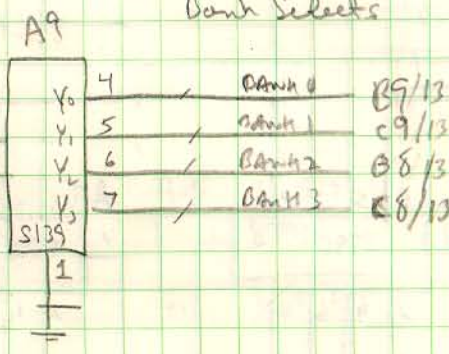 Bank Selects
A9
Y0 4 BANK 0 B9/13
Y1 5 BANK 1 C9/13
Y2 6 BANK 2 B8/13
Y3 7 BANK 3 C8/13
S139
1